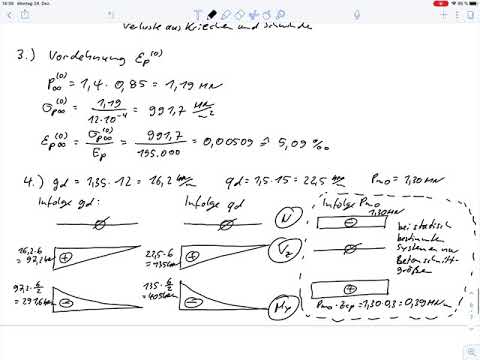 15:35 Montag 24. Dez.
Verluste aus Kriechen und Schwinden
3.) Vordehnung εp^(0)
P∞^(0) = 1,4 · 0,85 = 1,19 MN
σp∞^(0) = 1,19 / 12·10^-4 = 991,7 MN/m²
εp∞^(0) = σp∞^(0) / Ep = 991,7 / 195.000 = 0,00509 ≙ 5,09 ‰
4.) gd = 1,35 · 12 = 16,2 kN/m qd = 1,5 · 15 = 22,5 kN/m Pmo = 1,30 MN
Infolge gd: Infolge qd Infolge Pmo
N 1,30MN
⊖
bei statisch
bestimmten
Systemen nur
Betonschnitt-
größen
16,2·6
= 97,2 kN
⊕
22,5·6
= 135 kN
⊕
Vz
97,2·6/2
= 291,6 kNm
⊖
135·6/2
= 405 kNm
⊖
My
⊕
Pmo·Zcp = 1,30·0,3 = 0,39 MNm